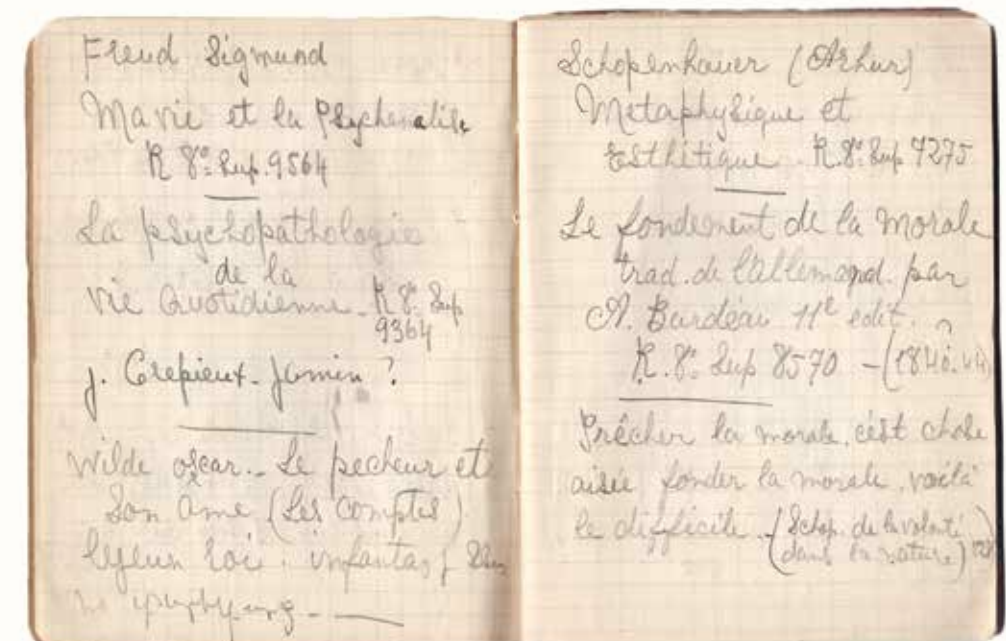 Freud Sigmund
Ma vie et la Psychanalise
R 8º Sup. 9564
La psychopathologie
de la
vie quotidienne - R 8º Sup
9364
J. Crepieux-Jamin ?
Wilde oscar - Le pecheur et
son ame (Les comptes)
roi . infantas
Schopenhauer (Arhur)
Metaphysique et
Esthétique R. 8º Sup 7275
Le fondement de la morale
trad. de l'allemand. par
A. Burdeau 11e edit.
R. 8º Sup 8570 - (1840.
Prêcher la morale, c'est chose
aisée fonder la morale, voilà
le difficile - (Schop. de la volonté
dans la nature)